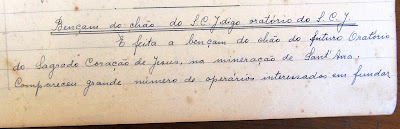 Bençam do chão do S.C.J digo oratório do S.C.J.
É feita a bençam do chão do futuro Oratório
do Sagrado Coração de Jesus, na mineração de Sant'Ana.
Compareceu grande número de operários interessados em fundar